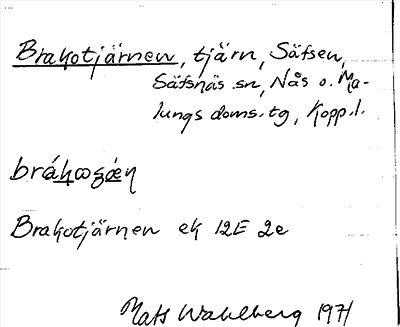 Brakotjärnen, tjärn, Säfsen,
Säfsnäs sn, Nås o. Ma-
lungs doms. tg, Kopp. l.
Brakotjärnen ek 12E 2e
Mats Wahlberg 1971